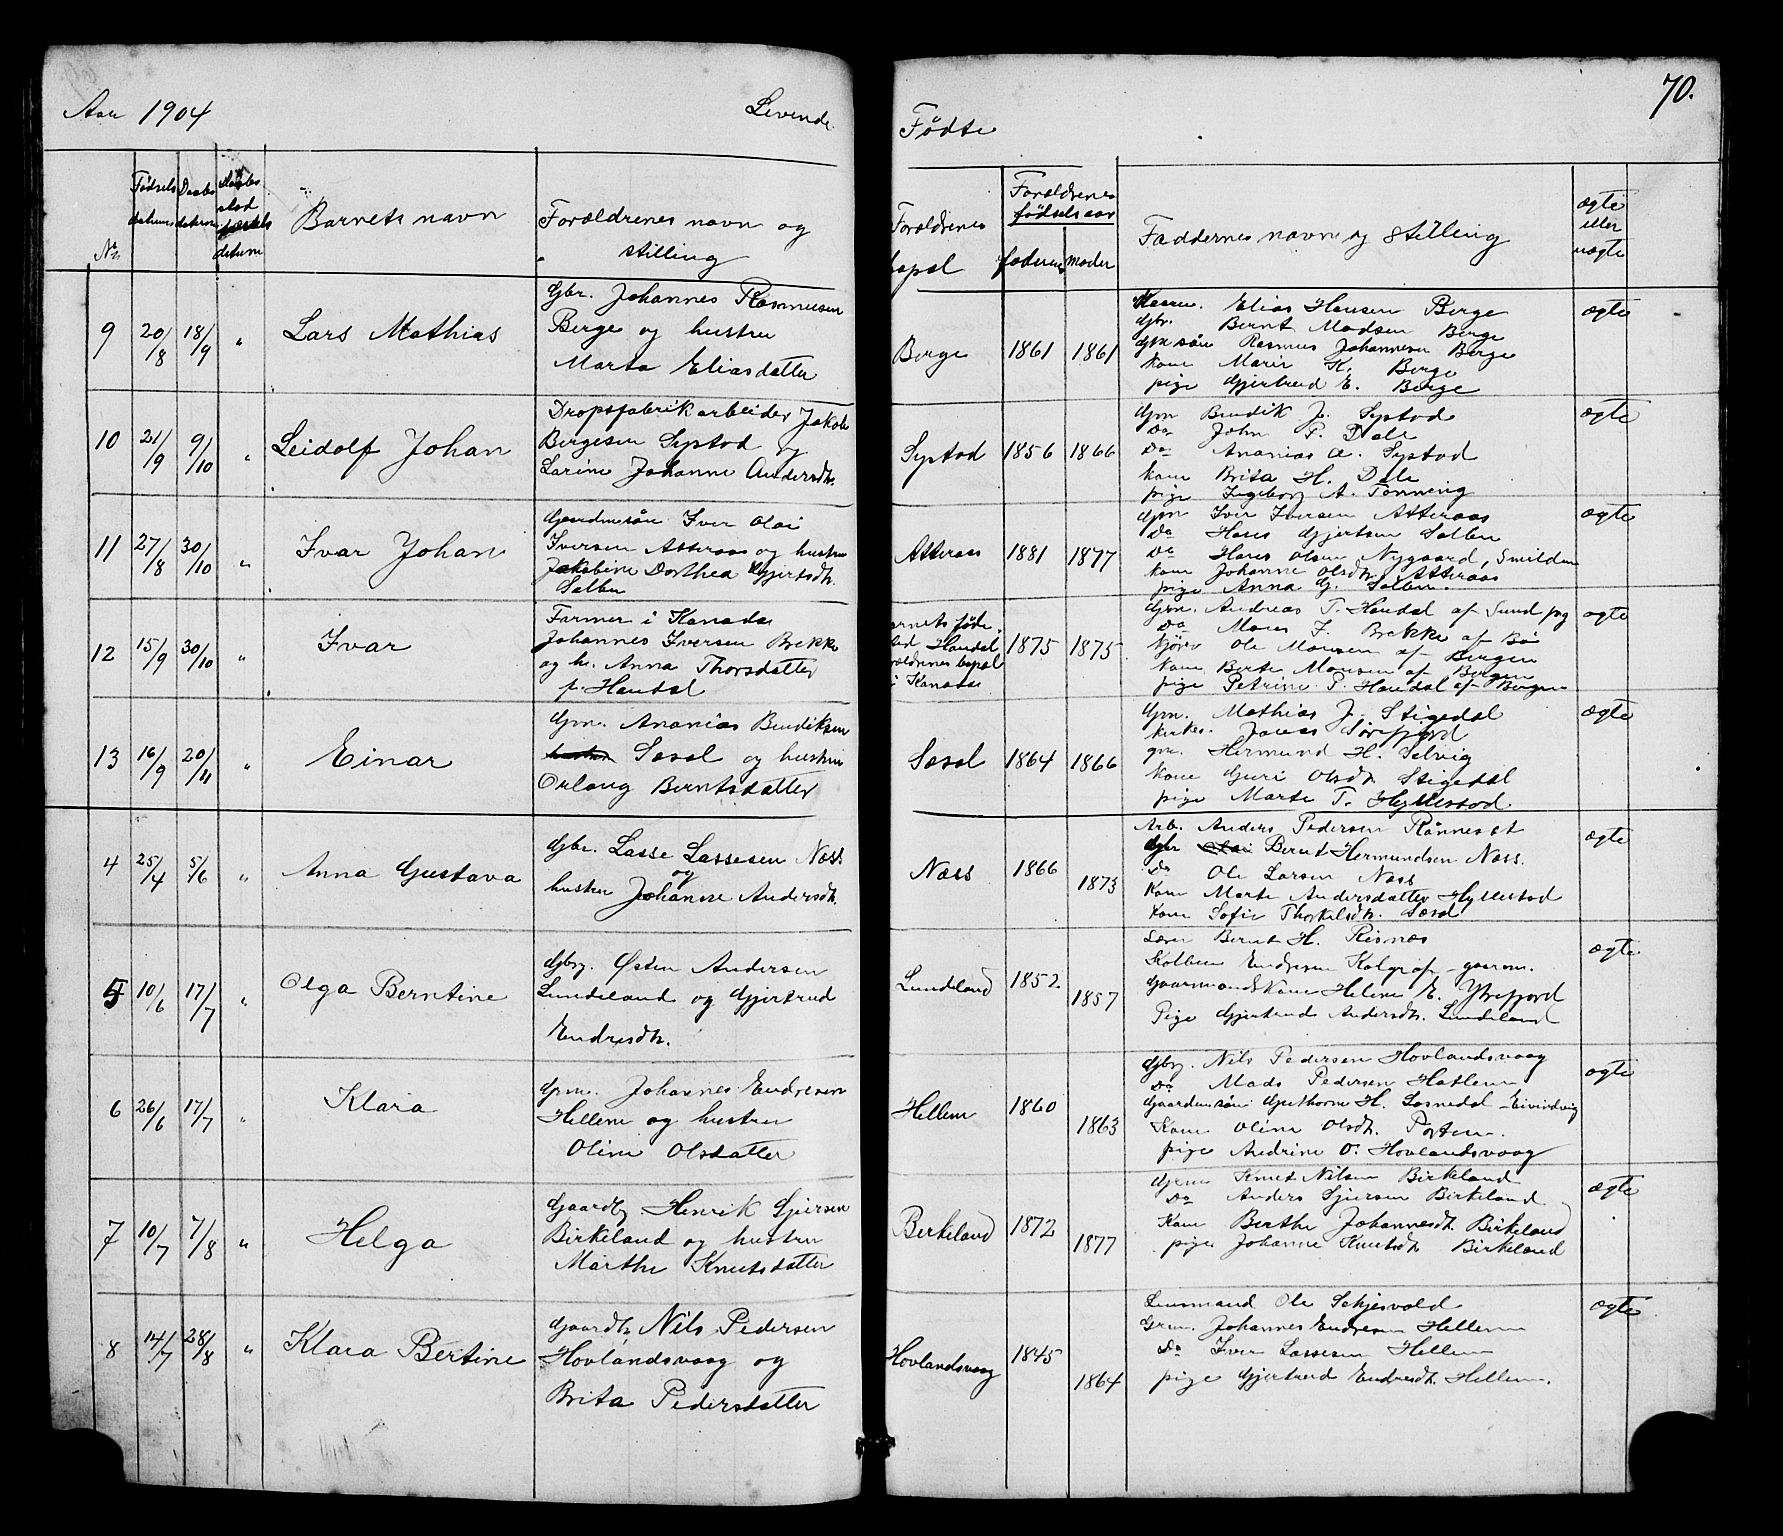 Aar 1904
Levende
Født
70.
No.
Fødsels
datum
Daabs
datum
datum
Barnets navn
Forældrenes navn og
stilling
Forældrenes
bopæl
Forældrenes
fødselsaar
faderens
moder
Faddernes navn og stilling
ægte
eller
uægte
9
20/8
18/9
"
Lars Mathias
Gbr. Johannes Rasmusen
Berge og hustru
Marta Eliasdatter
Berge
1861
1861
Elias Hansen Berge
Gbr. Bernt Madsen Berge
Gbr. søn Rasmus Johannesen Berge
kone Mari H. Berge
pige Gjertrud E. Berge
ægte
10
21/9
9/10
"
Leidolf Johan
Dropsfabrikarbeider Jakob
Børgesen Systad og
Larine Johanne Andersdtr.
Systad
1856
1866
Gm Bendik J. Systad
Do John P. Dale
Do Ananias A. Systad
kone Brita H. Dale
pige Ingeborg A. Tønning
ægte
11
27/8
30/10
"
Ivar Johan
Gaardmsøn Iver Olai
Iversen Atteraas og hustru
Jakobine Dorthea Gjertsdtr.
Salbu
Atteraas
1881
1877
Gm Iver Iversen Atteraas
Do Hans Gjertsen Salbu
Do Hans Olsen Nygaard, Smilden
kone Johanne Olsdtr. Atteraas
pige Anna G. Salbu.
ægte
12
15/9
30/10
"
Ivar
Farmer i Kanada
Johannes Iversen Brekke
og h. Anna Thorsdatter
f. Haudal
Haudal
bopæl
i Kanada
1875
1875
Grn. Andreas T. Haudal af Sund
Do Mons I. Brekke af Bø
Ole Monsen af Bergen
kone Berte Monsen af Bergen
pige Petrine P. Haudal af Bergen
ægte
13
16/9
20/11
"
Einar
Gm. Ananias Bendiksen
Sæsol og hustru
Orlaug Berntsdatter
Sæsol
1864
1866
Gm. Mathias J. Stigedal
kirkes. Jonas Sørefjord
gm. Hermund H. Selvig
kone Guri Olsdtr. Stigedal
pige Marte T. Hyllestad
ægte
4
25/4
5/6
"
Anna Gustava
Gbr. Lasse Lassesen Næss
og
hustru Johanne Andersdtr.
Næss
1866
1873
Arb. Anders Pedersen Rønneset
Gbr Bernt Hermundsen Næss.
Do Ole Larsen Næss
Kone Marte Andersdatter Hyllestad
Kone Sofie Thorkelsdtr. Sæsol
ægte
5
10/6
17/7
"
Olga Berntine
Gbrg. Østen Andersen
Lundeland og Gjertrud
Endresdtr.
Lundeland
1852
1857
Bernt H. Risnes
Kolbein Endresen Kolgrøf - gaarm.
Gaarmandskone Helene E. Ytrefjord
Pige Gjertrud Andersdtr. Lundeland
ægte
6
26/6
17/7
"
Klara
Grm. Johannes Endresen
Hellem og hustru
Oline Olsdatter
Hellem
1860
1863
Gbrg. Nils Pedersen Hovlandsvaag
Do Mads Pedersen Hatlem
Gaardmsøn Guthorm H. Losnedal - Eivindvig
Kone Oline Olsdtr. Porten.
pige Andrine O. Hovlandsvaag
ægte
7
10/7
7/8
"
Helga
Gaardb. Henrik Sjursen
Birkeland og hustru
Marthe Knutsdatter
Birkeland
1872
1877
Grm Knut Nilsen Birkeland
Do Anders Sjursen Birkeland
Kone Berthe Johannesdt. Birkeland
pige Johanne Knutsdtr Birkeland
ægte
8
14/7
28/8
"
Klara Bertine
Gaardb. Nils Pedersen
Hovlandsvaag og
Brita Pedersdatter
Hovlandsvaag
1845
1864
Lensmand Ole Schjesvold
Grm. Johannes Endresen Hellem
Do Iver Lassesen Hellem
pige Gjertrud Endresdt. Hellem.
ægte